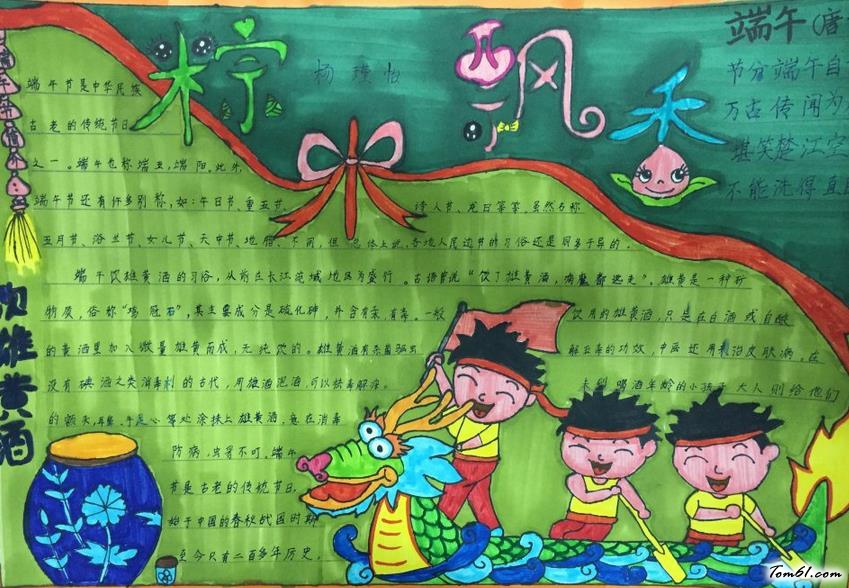 柠飘香
杨瑾怡
端午(唐
节分端午自
万古传闻为
堪笑楚江空
不能洗得直
端午节情
饮雄黄酒
端午节是中华民族
古老的传统节日
之一。端午也称端五,端阳。此外,
端午节还有许多别称,如:午日节、重五节,
诗人节、龙日等等。虽然名称
五月节、浴兰节、女儿节、天中节、地腊、不同,但总体上说,各地人民过节的习俗还是同多于异的。
端午饮雄黄酒的习俗,从前在长江流域地区为盛行。古语曾说"饮了雄黄酒,病魔都远走"。雄黄是一种矿
物质,俗称"鸡冠石",其主要成分是硫化砷,并含有汞,有毒。一般
饮用的雄黄酒,只是在白酒或自酿
的黄酒里加入微量雄黄而成,无纯饮的。雄黄酒有杀菌驱虫
解五毒的功效,中医还用来治皮肤病。在
没有碘酒之类消毒剂的古代,用雄黄泡酒,可以祛毒解痒。
未到喝酒年龄的小孩子,大人则给他们
的额头,耳鼻、手足心等处涂抹上雄黄酒,意在消毒
防病,虫豸不叮。端午
节是古老的传统节日,
始于中国的春秋战国时期
至今已有二千多年历史。
Tom61.com